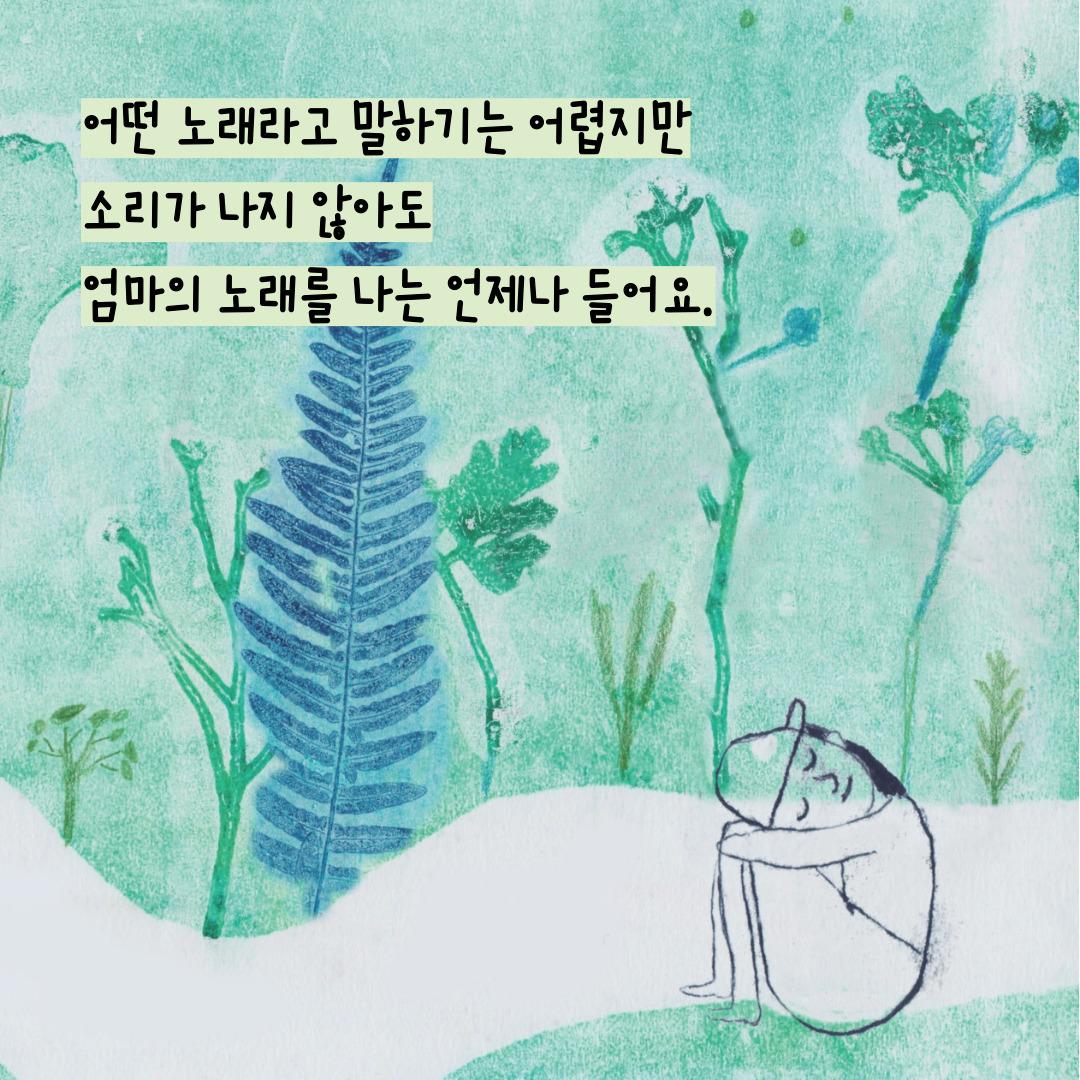 어떤 노래라고 말하기는 어렵지만
소리가 나지 않아도
엄마의 노래를 나는 언제나 들어요.